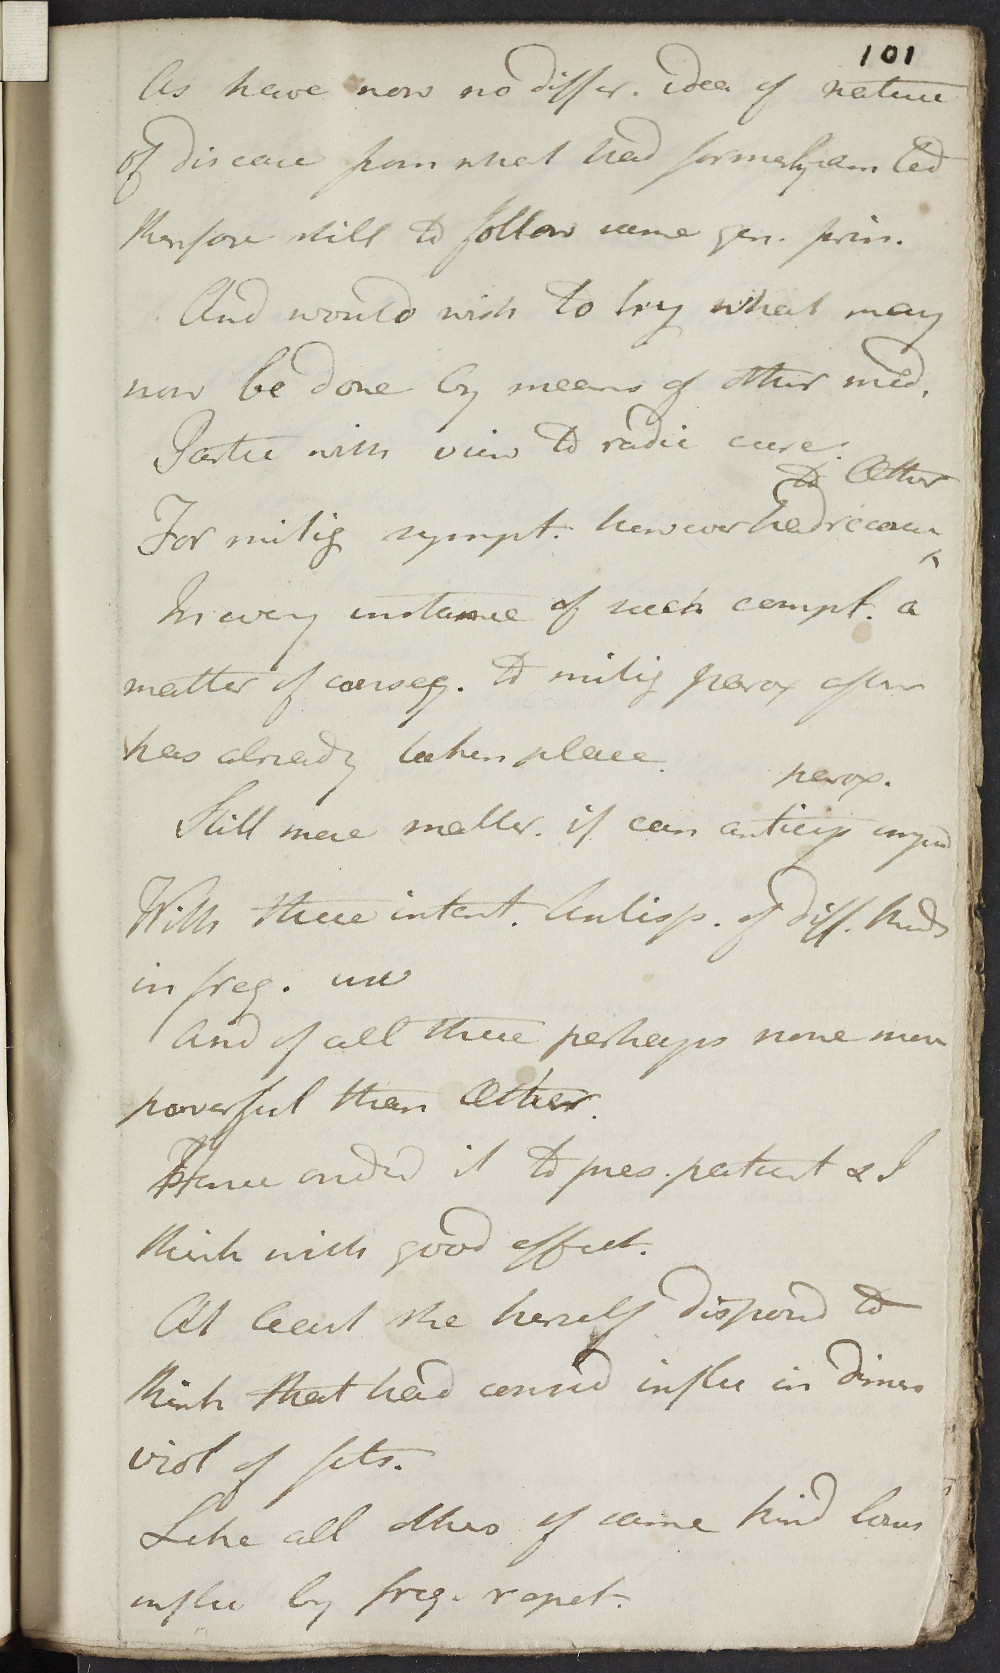 101
As have now no differ. idea of nature
of disease from what had formerly am led
therefore still to follow same gen. prin.
And would wish to try what may
now be done by means of other med.
Partic with view to radic cure.
to Æther
For mitig sympt. however had recour
^
In every instance of such compt. a
matter of conseq. to mitig parox after
has already taken place.
parox.
Still more matter. if can anticip
With these intent. Antisp. of diff. kinds
in freq. use
And of all these perhaps none more
powerful than Æther.
Hence order'd it to pres. patient & I
think with good effect.
At least she herself disposed to
think that had consid influ in dimin
viol of fits.
Like all others of same kind loses
influ by freq. repet.